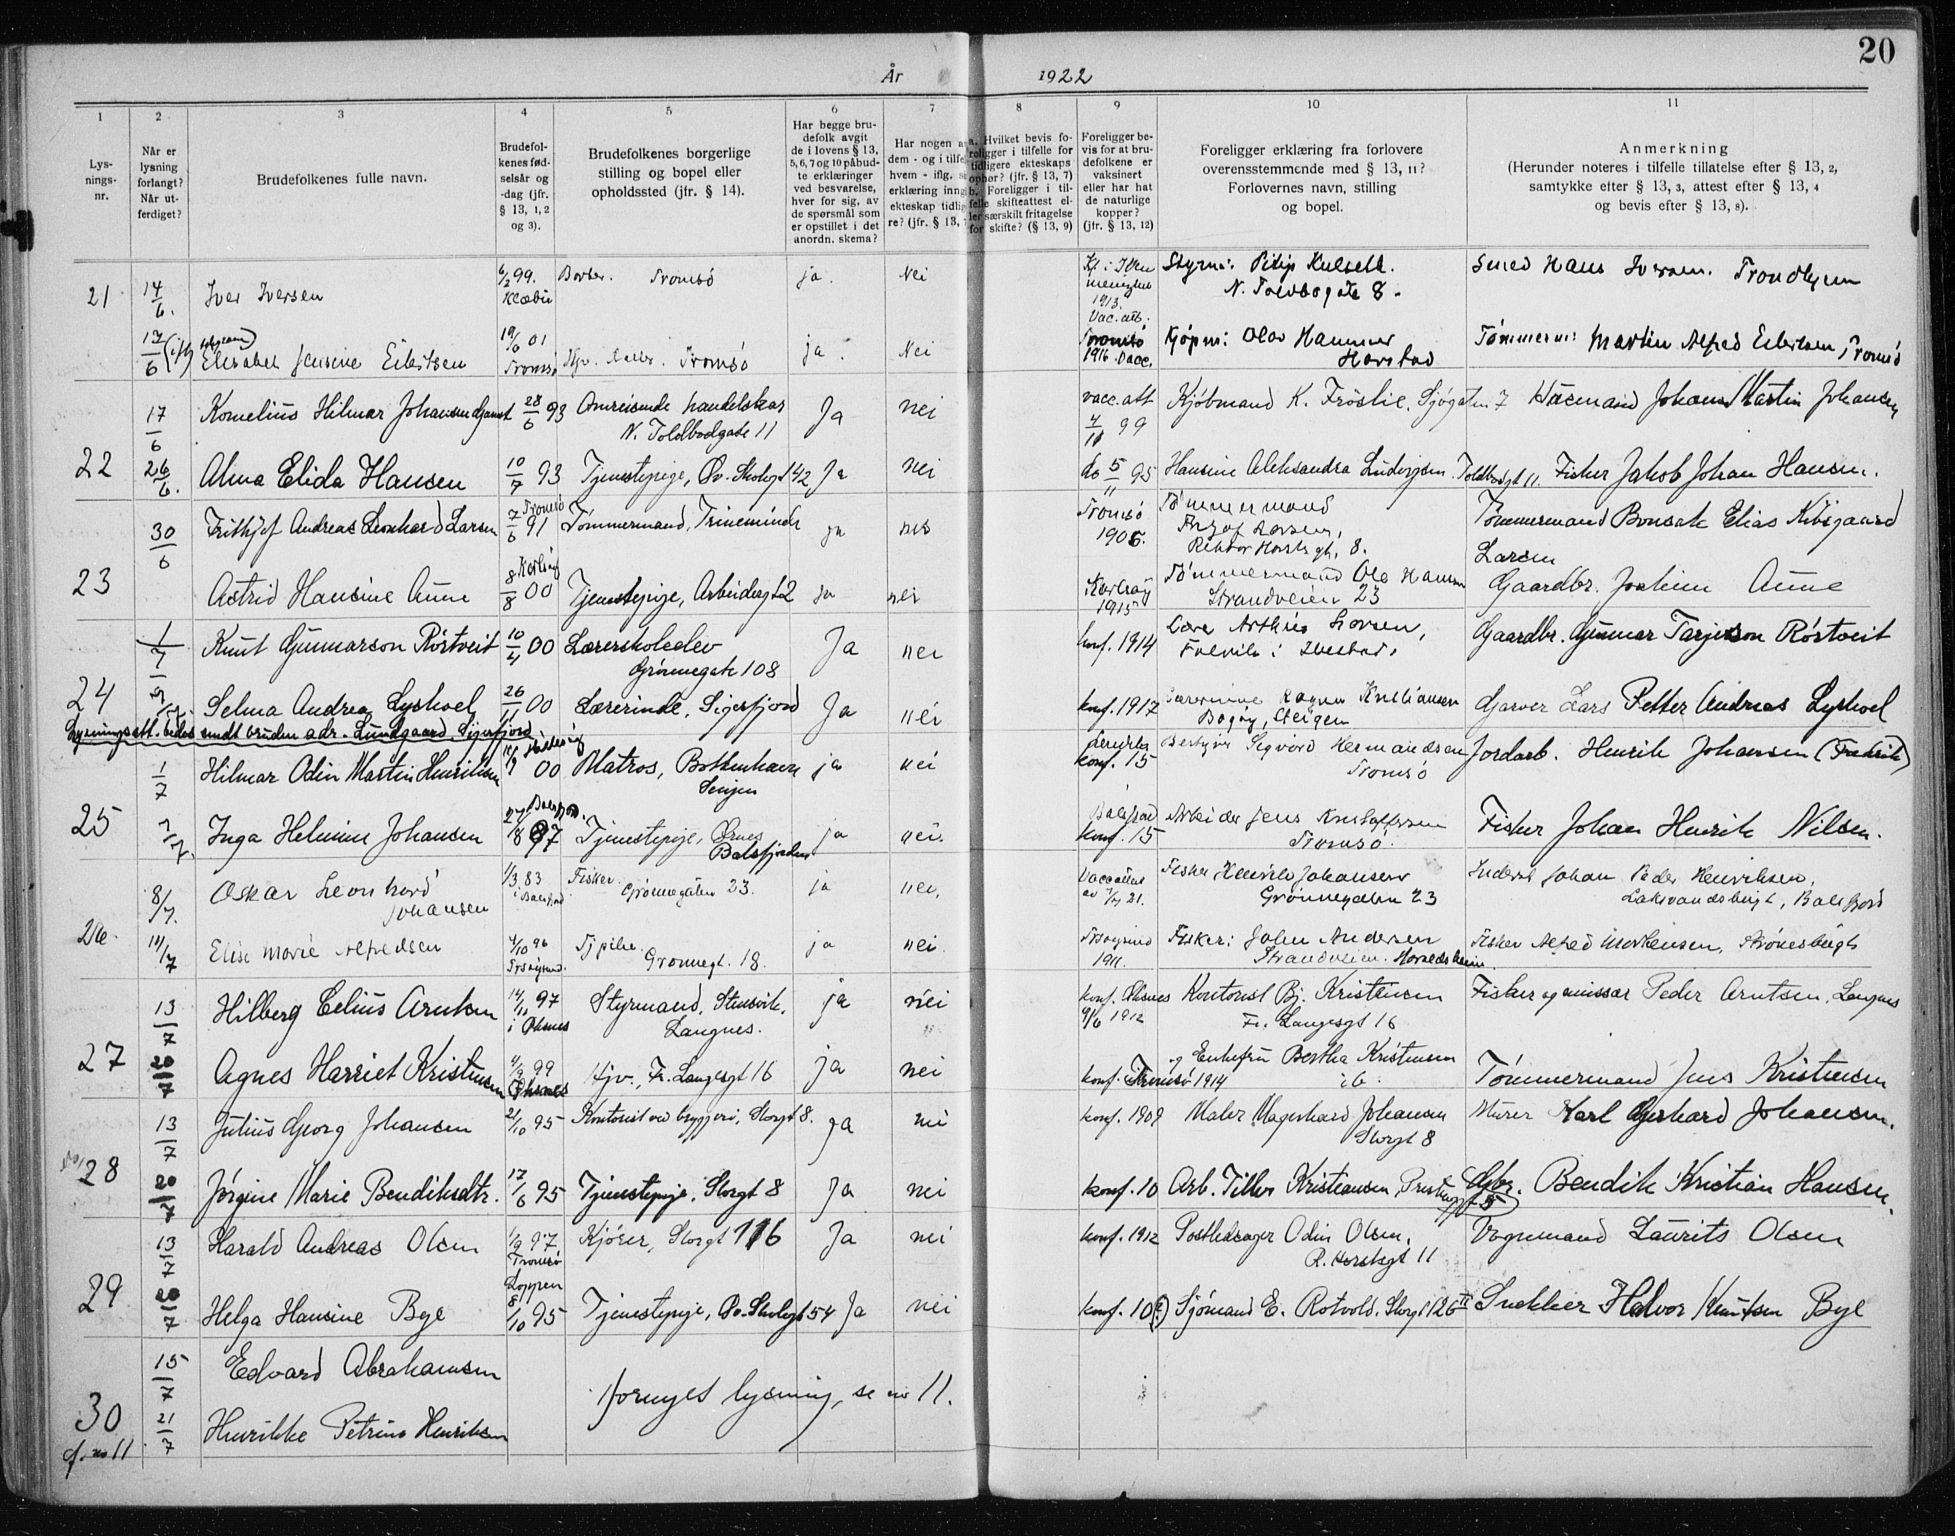 20
År 1922
1 2 3 4 5 6 7 8 9 10 11
Lys-
nings-
nr.
Når er
lysning
forlangt?
Når ut-
ferdiget?
Brudefolkenes fulle navn.
Brudefol-
kenes fød-
selsår og
-dag (jfr.
§ 13, 1, 2
og 3).
Brudefolkenes borgerlige
stilling og bopel eller
opholdssted (jfr. § 14).
Har begge bru-
defolk avgit
de i lovens § 13,
5, 6, 7 og 10 påbud-
te erklæringer
ved besvarelse,
hver for sig, av
de spørsmål som
er opstillet i det
anordn. skema?
Har nogen a
dem - og i tilfe
hvem - iflg. s
erklæring inng
ekteskap tidlig
re? (jfr. § 13,
a. Hvilket bevis fo-
religger i tilfelle for
tidligere ekteskaps
ophør? (jfr. § 13, 7)
b. Foreligger i til-
felle skifteattest el-
ler særskilt fritagelse
for skifte? (§ 13, 9)
Foreligger be-
vis for at bru-
defolkene er
vaksinert
eller har hat
de naturlige
kopper?
(jfr. § 13, 12)
Foreligger erklæring fra forlovere
overensstemmende med § 13, 11?
Forlovernes navn, stilling
og bopel.
Anmerkning
(Herunder noteres i tilfelle tillatelse efter § 13, 2,
samtykke efter § 13, 3, attest efter § 13, 4
og bevis efter § 13, 8).
21 14/6. Iver Iversen 6/2 99. Klæbu Tromsö ja. Nei 1913. Vac. att. Styrm: N. Toldbogate 8. Smed Hans Iversen. Trondhjem
17/6 Elisabet Jensine Eilertsen 19/6 01 Tromsö Tromsö ja. Nei Tromsö 1916. Vacc. Kjøpm: Olav Hammer Harstad Tømmerm: Martin Alfred Eilertsen, Tromsö
17/6 Kornelius Hilmar Johansen 28/6 93 Omreisende handelskar N. Toldbodgate 11 Ja nei vacc. att 99 Kjöbmand K. Fröslie, Sjøgaten 7 Husmand Johan Martin Johansen
22 26/6. Alma Elida Hansen 10/7 93 Tjenestepige, Øv. Skolegt 42 Ja nei do 5/11 95 Hansine Aleksandra Ludvigsen. Toldbodgt 11. Fisker Jakob Johan Hansen.
30/6 Frithjof Andreas Leonhard Larsen 7/6 91 Tromsö Tömmermand, ja nei Tromsö 1906. Tömmermand Larsen, Rektor Horsts gt. 8. Tömmermand Bonsak Elias Larsen
23 Astrid Hansine Aune 8/8 00 Tjenestepige, Arbeidergt 2 ja nei Karlsøy 1915 Tømmermand Ole Hansen Strandveien 23 Gaardbr. Joakim Aune
1/7 Knut Gunnarson Röstveit 10/4 00 Lærerskoleelev Grönnegate 108 Ja nei konf. 1914 Larsen, i Ibestad. Gaardbr. Gunnar Tarjeison Röstveit
24 5/7. Selma Andrea Lyshoel 26/11 00 Lærerinde, Sigerfjord Ja nei konf. 1917 Lærerinne Ragna Kristiansen Bogøy, Steigen Garver Lars Petter Andreas Lyshoel
Lysningsatt. bedes sendt bruden adr. Lundgaard, Sigerfjord
1/7 Hilmar Odin Martin Henriksen 00 Matros, Senjen ja nei Lenvik konf. 15 Sigvard Hermandsen Tromsø Jordarb. Henrik Johansen (Fredrik)
25 7/7. Inga Helmine Johansen 27/8 97 Balsfjord. Tjenestepige, Balsfjorden ja nei. Balsfjord konf. 15 Arbeider Jens Kristoffersen Tromsø. Fisker Johan Henrik Nilsen.
8/7. Oskar Leonhard Johansen 1/3 83 i Balsfjord Fisker. Grønnegaten 23. ja nei. Vacc attest av 21. Fisker Henrik Johansen Grønnegaten 23 Inderst Johan Peder Henriksen, Laksvandsbugt, Balsfjord
26. 14/7 Elise Marie Alfredsen 4/10 96 Tjpike. Grønnegt. 18. ja nei. 1911. Fisker: John Andersen Strandveien. Fisker Alfred Mortensen,
13/7 Hilberg Celius Arntsen 14/11 97 i Øksnes Styrmand, Langnes. ja nei konf. Øksnes 9/6 1912 Kontorist Bj. Kristensen Fr. Langesgt 16 Fisker og Peder Arntsen, Langnes
27 20/7 Agnes Harriet Kristensen 4/9 99 Hjv., Fr. Langesgt 16 ja nei konf. Tromsö 1914 og Enkefru Bertha Kristensen ib. Tömmermand Jens Kristensen
13/7 Julius Georg Johansen 2/10 95 Kontorist ved bryggeri, Storgt 8. Ja nei konf. 1909 Maler Magerhard Johansen Storgt 8 Murer Karl Gerhard Johansen.
28 20/7 Jörgine Marie Bendiksdtr. 17/6 95 Tjenestepige, Storgt 8 Ja nei konf. 10 Arb. Kristiansen, 5 Gbr. Bendik Kristian Hansen.
13/7 Harald Andreas Olsen 1/9 97 Tromsö Kjörer, Storgt 116 Ja nei konf. 1912 Postledsager Odin Olsen. R. Horstsgt 11 Vognmand Laurits Olsen
29 20/7 Helga Hansine Bye Loppen 8/10 95 Tjenestepige, Øv. Skolegt 54 Ja nei konf. 10(?) Sjömand E. Rotvold. Storgt 126 II Snekker Halvor Knutsen Bye
15/7 Edvard Abrahamsen
fornyet lysning, se no 11.
30 21/7 Henrikke Petrine Henriksen
cf. no 11